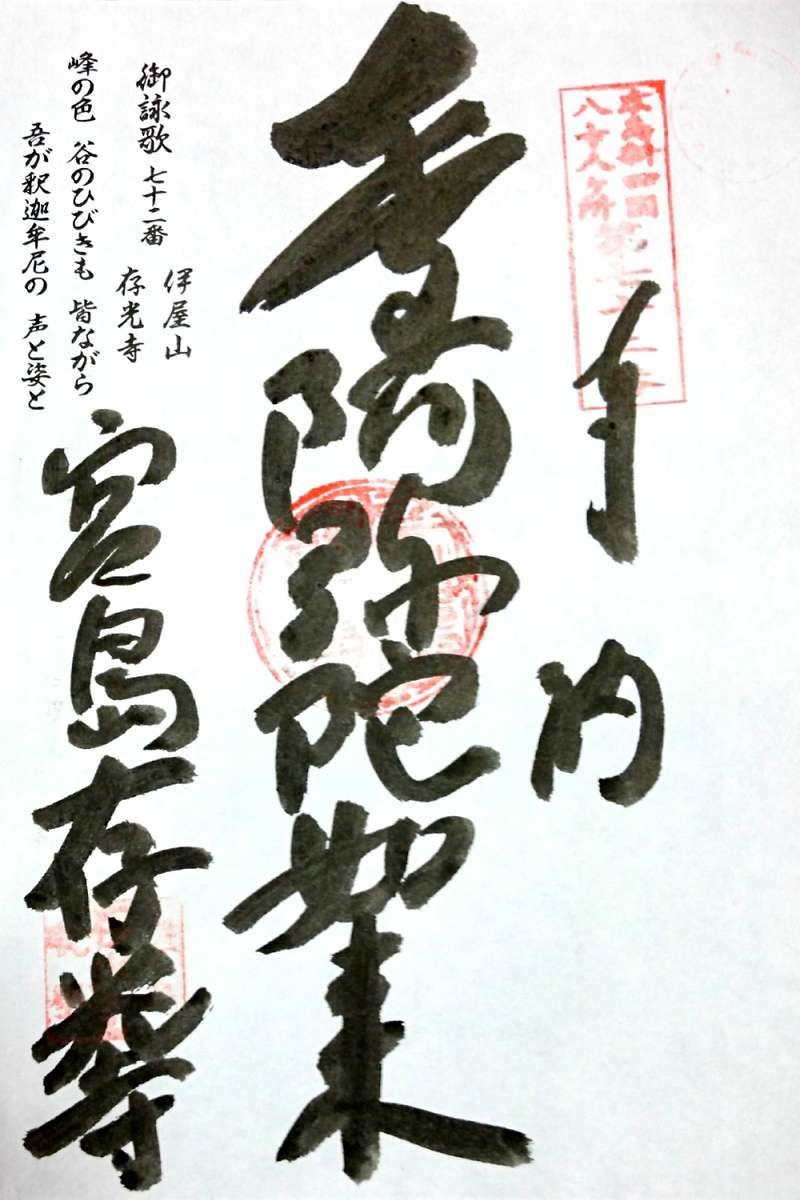 広島新四国
八十八ヶ所 第七十二番
奉納
阿弥陀如来
伊屋山
存光寺
御詠歌 七十二番
峰の色 谷のひびきも 皆ながら
吾が釈迦牟尼の 声と姿と
宮島存光寺